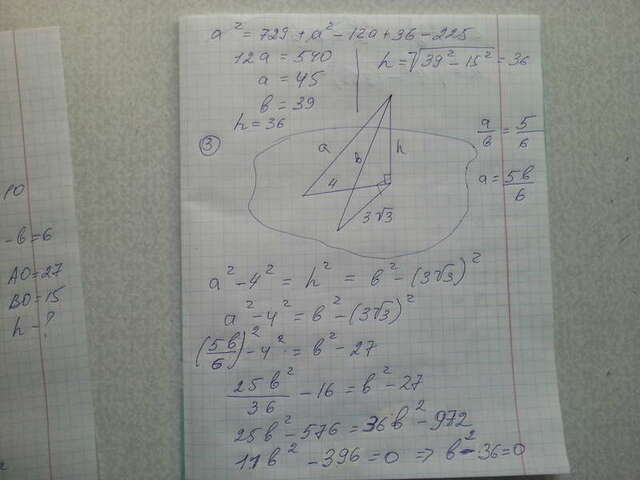 РО
-в=6
AO=27
BO=15
h-?
a² = 729 + a² - 12a + 36 - 225
12a = 540
a = 45
в = 39
h = 36
h = √(39² - 15²) = 36
③
a
в
h
4
3√3
a/в = 5/6
a = 5в/6
a² - 4² = h² = в² - (3√3)²
a² - 4² = в² - (3√3)²
(5в/6)² - 4² = в² - 27
25в²/36 - 16 = в² - 27
25в² - 576 = 36в² - 972
11в² - 396 = 0 => в² - 36 = 0